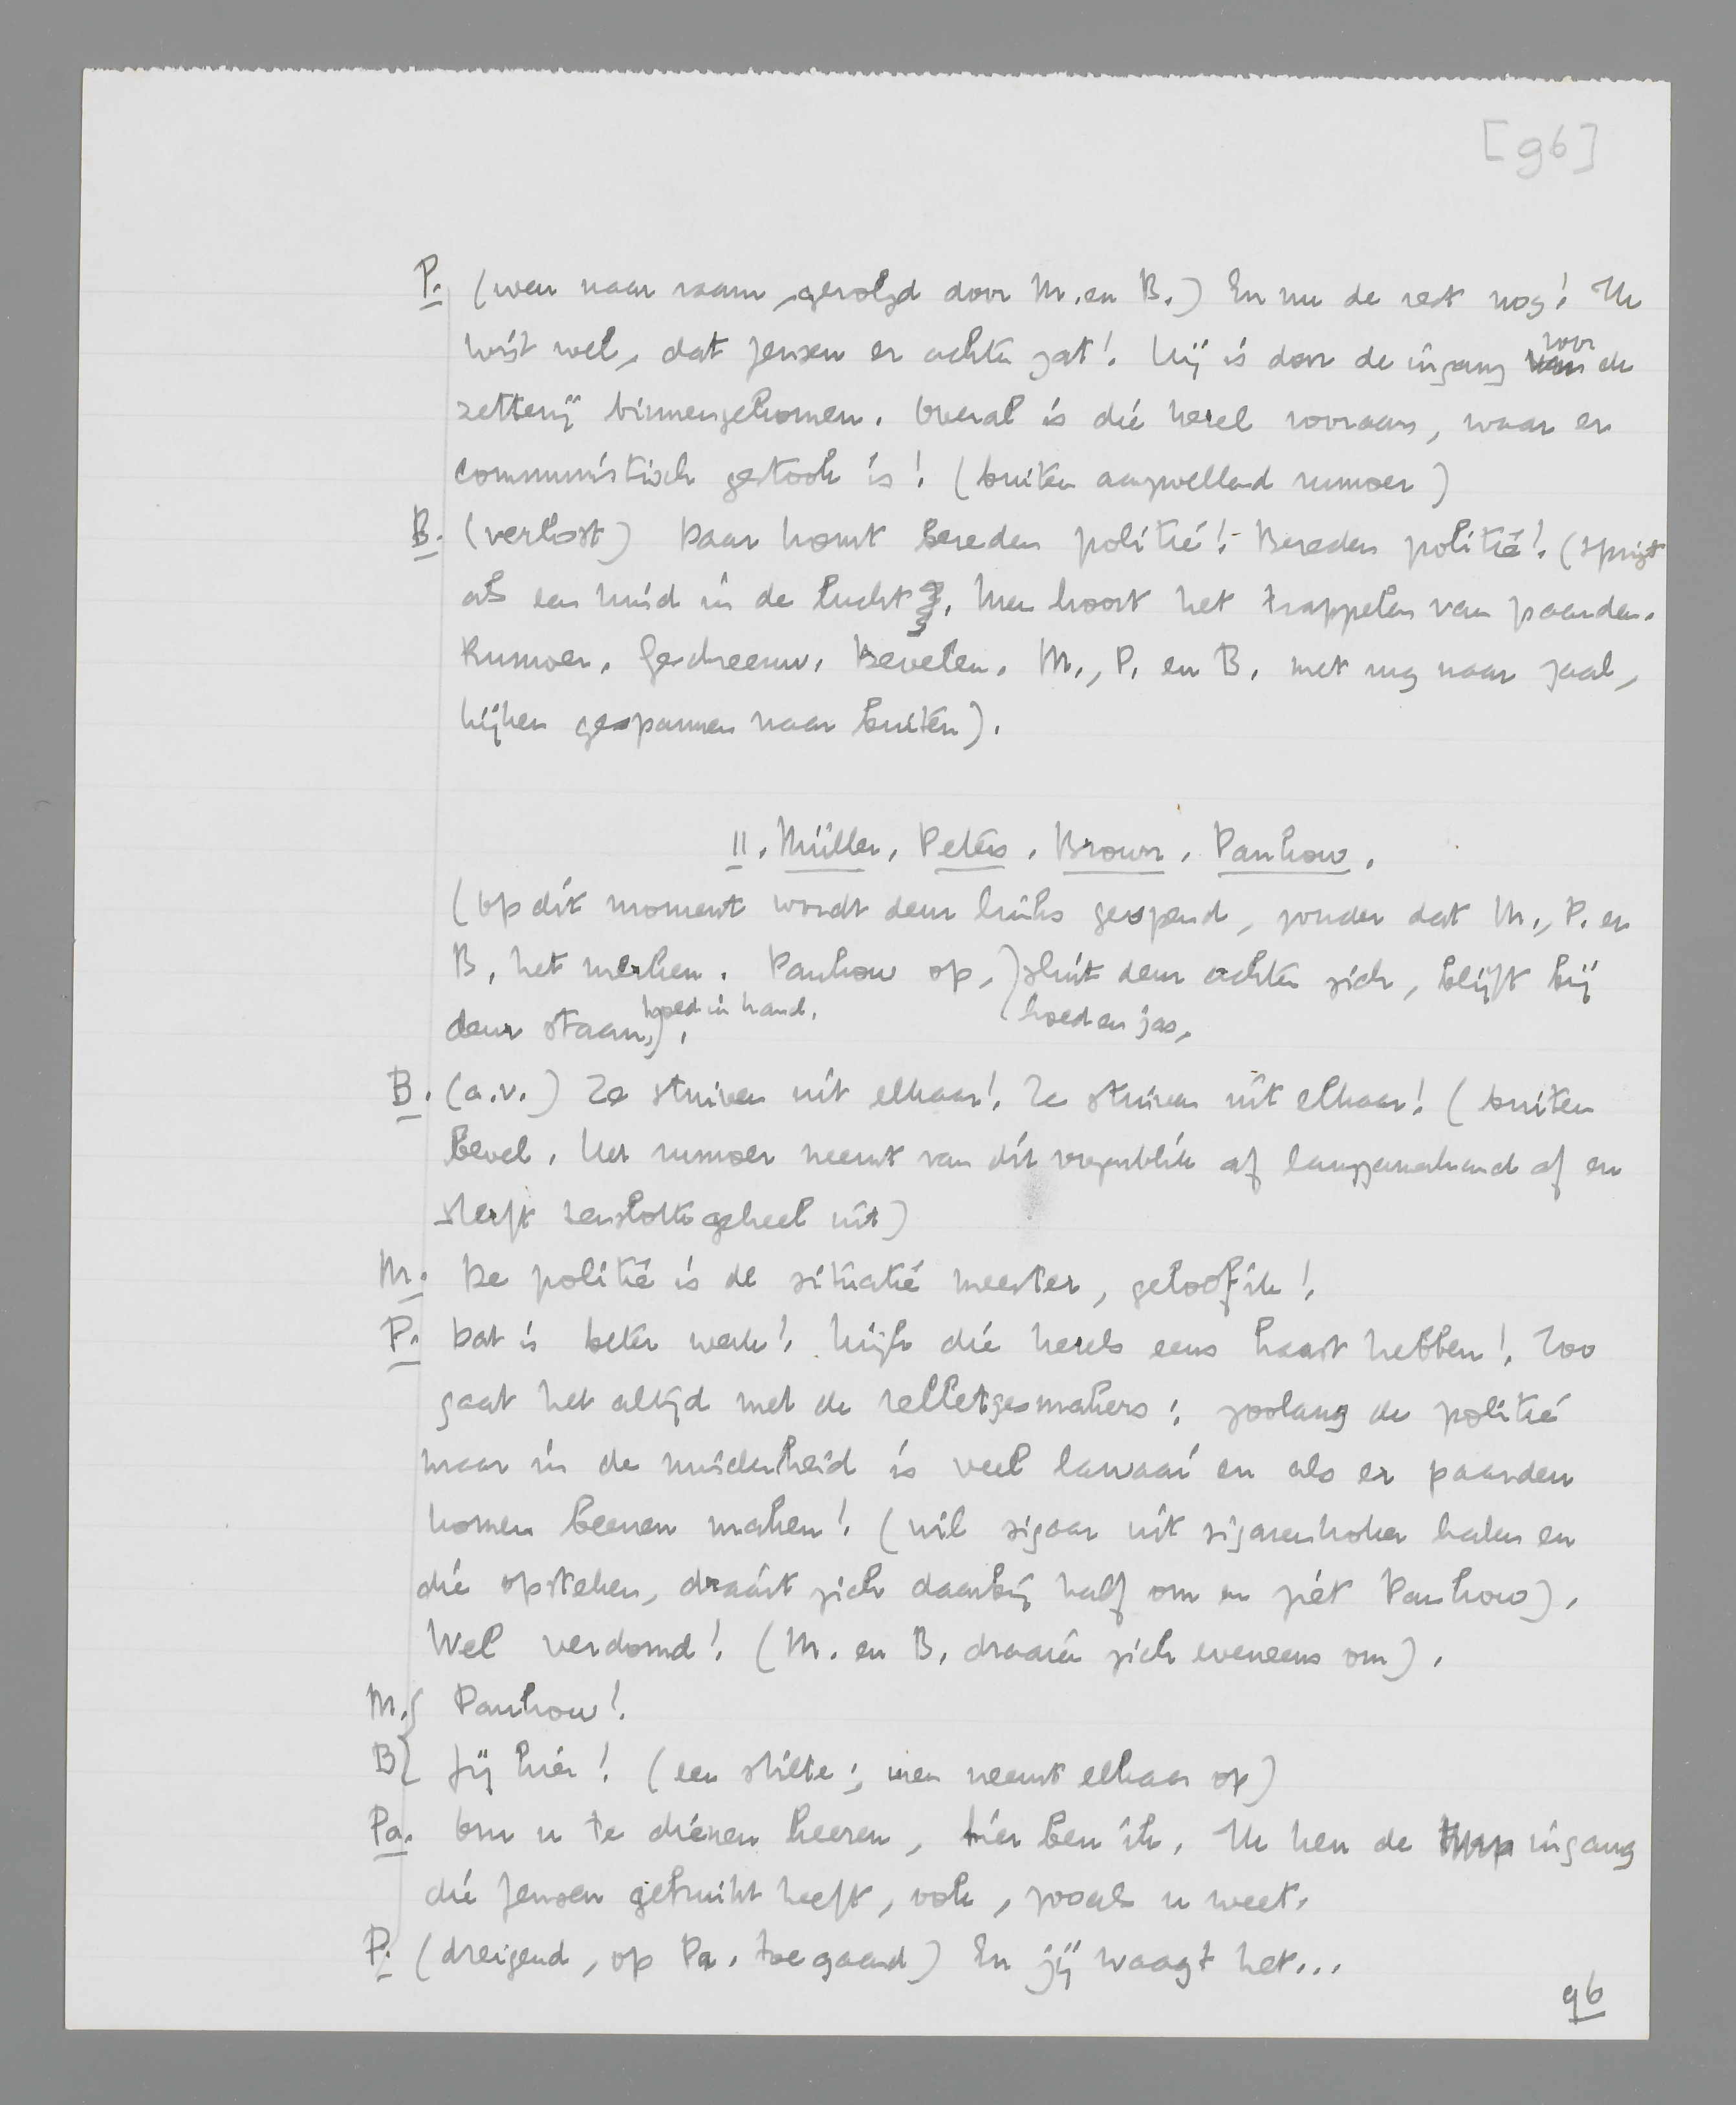 [96]
P. (weer naar raam, gevolgd door M. en B.) En nu de rest nog! Ik
wist wel, dat Jensen er achter zat! Hij is door de ingang voor de
zetterij binnengekomen. Overal is die kerel vooraan, waar er
communistisch gestook is! (buiten aanzwellend rumoer)
B. (verlost) Daar komt bereden politie! Bereden politie! (springt
als een kind in de lucht. Men hoort het trappelen van paarden.
Rumoer. Geschreeuw. Bevelen. M., P. en B. met rug naar zaal,
kijken gespannen naar buiten).
II. Müller, Peters, Brown, Pankow.
(Op dit moment wordt deur links geopend, zonder dat M., P. en
B. het merken. Pankow op, sluit deur achter zich, blijft bij
deur staan, hoed in hand.) hoed en jas,
B. (a.v.) Ze stuiven uit elkaar! Ze stuiven uit elkaar! (buiten
bevel. Het rumoer neemt van dit oogenblik af langzamerhand af en
sterft tenslotte geheel uit)
M. De politie is de situatie meester, geloof ik!
P. Dat is beter werk! Kijk die kerels eens haast hebben! Zoo
gaat het altijd met de relletjesmakers: zoolang de politie
maar in de minderheid is veel lawaai en als er paarden
komen beenen maken! (wil sigaar uit sigarenkoker halen en
die opsteken, draait zich daarbij half om en ziet Pankow).
Wel verdomd! (M. en B. draaien zich eveneens om).
M.} Pankow!
B} Jij hier! (een stilte; men neemt elkaar op)
Pa. Om u te dienen heeren, hier ben ik. Ik ken de ingang
die Jensen gebruikt heeft, ook, zooals u weet.
P. (dreigend, op Pa. toegaand) En jij waagt het...
96